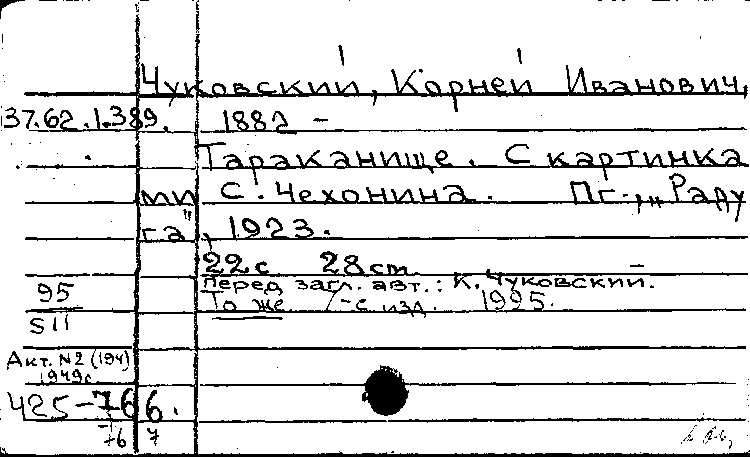 Чуковский, Корней Иванович,
37.62.1.389. 1882 –
Тараканище. С картинка
ми С. Чехонина. Пг., „Раду
га", 1923.
22 с 28 cm.
Перед загл. авт.: К. Чуковский.
95 То же 7-е изд. 1925.
S11
Акт. №2 (194)
1949 г.
425-766.
76 7